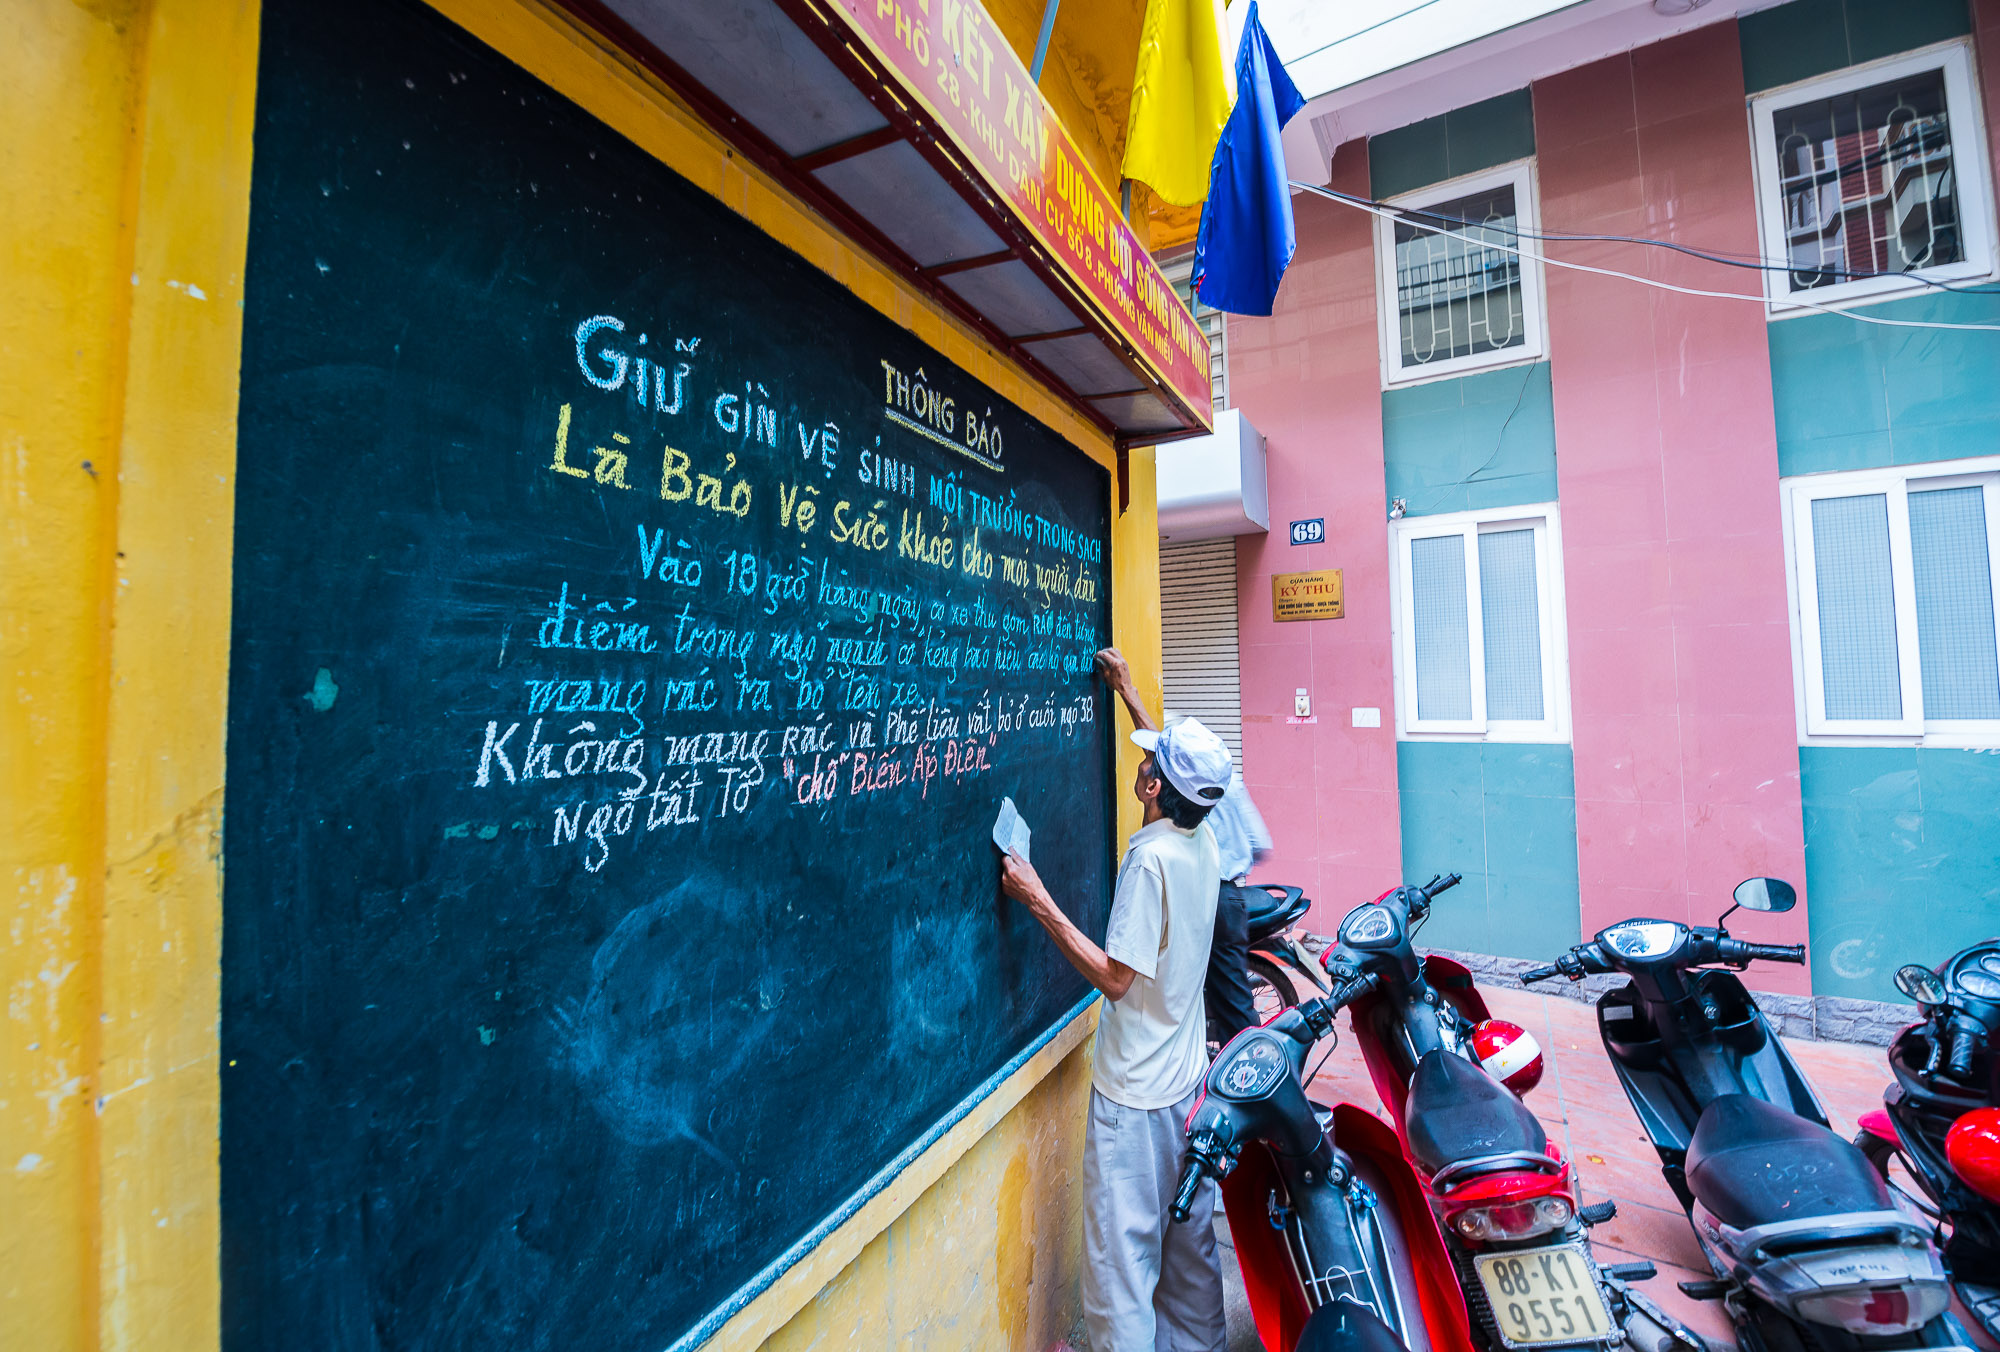 KẾT XÂY DỰNG ĐỜI SỐNG VĂN HÓA
PHỐ 28 - KHU DÂN CƯ SỐ 8 - PHƯỜNG VĂN MIẾU
THÔNG BÁO
GIỮ GÌN VỆ SINH MÔI TRƯỜNG TRONG SẠCH
Là Bảo Vệ Sức khỏe cho mọi người dân
Vào 18 giờ hàng ngày, có xe thu gom RÁC đến từng
điểm trong ngõ ngách có kẻng báo hiệu các hộ gia đình
mang rác ra bỏ lên xe.
Không mang RÁC và Phế liệu vất bỏ ở cuối ngõ 38
Ngõ tất Tố "chỗ Biến Áp Điện"
69
CỬA HÀNG
KỲ THU
88-K1
9551
YAMAHA